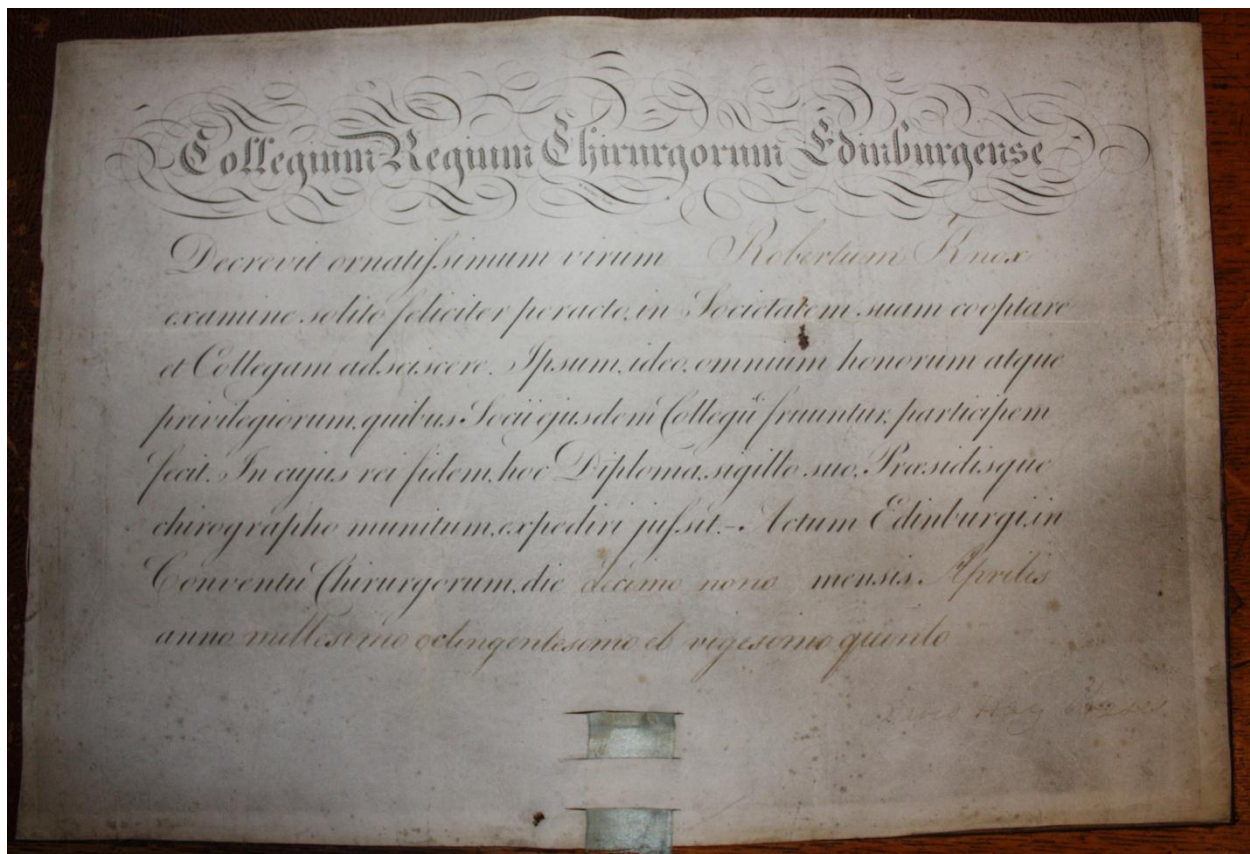 Collegium Regium Chirurgorum Edinburgense
Decrevit ornatissimum virum Robertum Knox
examine solito feliciter peracto, in Societatem suam cooptare
et Collegam adsciscere. Ipsum, ideo, omnium honorum atque
privilegiorum, quibus Socii ejusdem Collegii fruuntur, participem
fecit. In cujus rei fidem, hoc Diploma, sigillo suo, Præsidisque
chirographo munitum, expediri jussit. – Actum Edinburgi, in
Conventu Chirurgorum, die decimo nono mensis Aprilis
anno millesimo octingentesimo et vigesimo quinto
David Hay